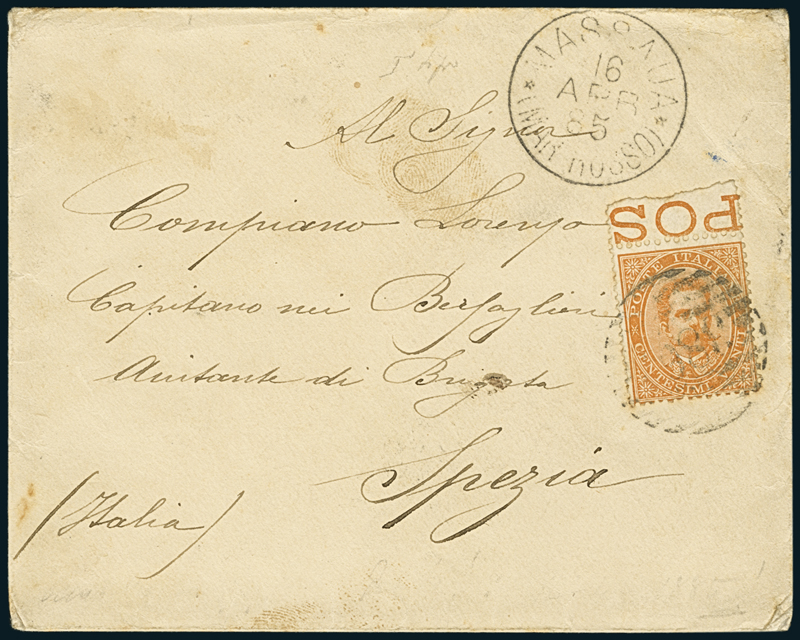 MASSAUA
16
APR
85
(MAR ROSSO)
Al Signor
POS
Compiano Lorenzo
POSTE ITALIANE
Capitano nei Bersaglieri
CENTESIMI VENTI
Aiutante di Brigata
Spezia
(Italia)